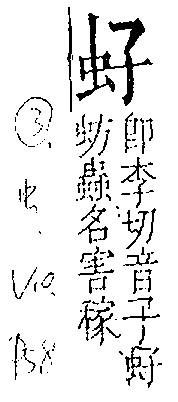 虸
即李切音子虸
蚄蟲名害稼
③.
虫.
V10.